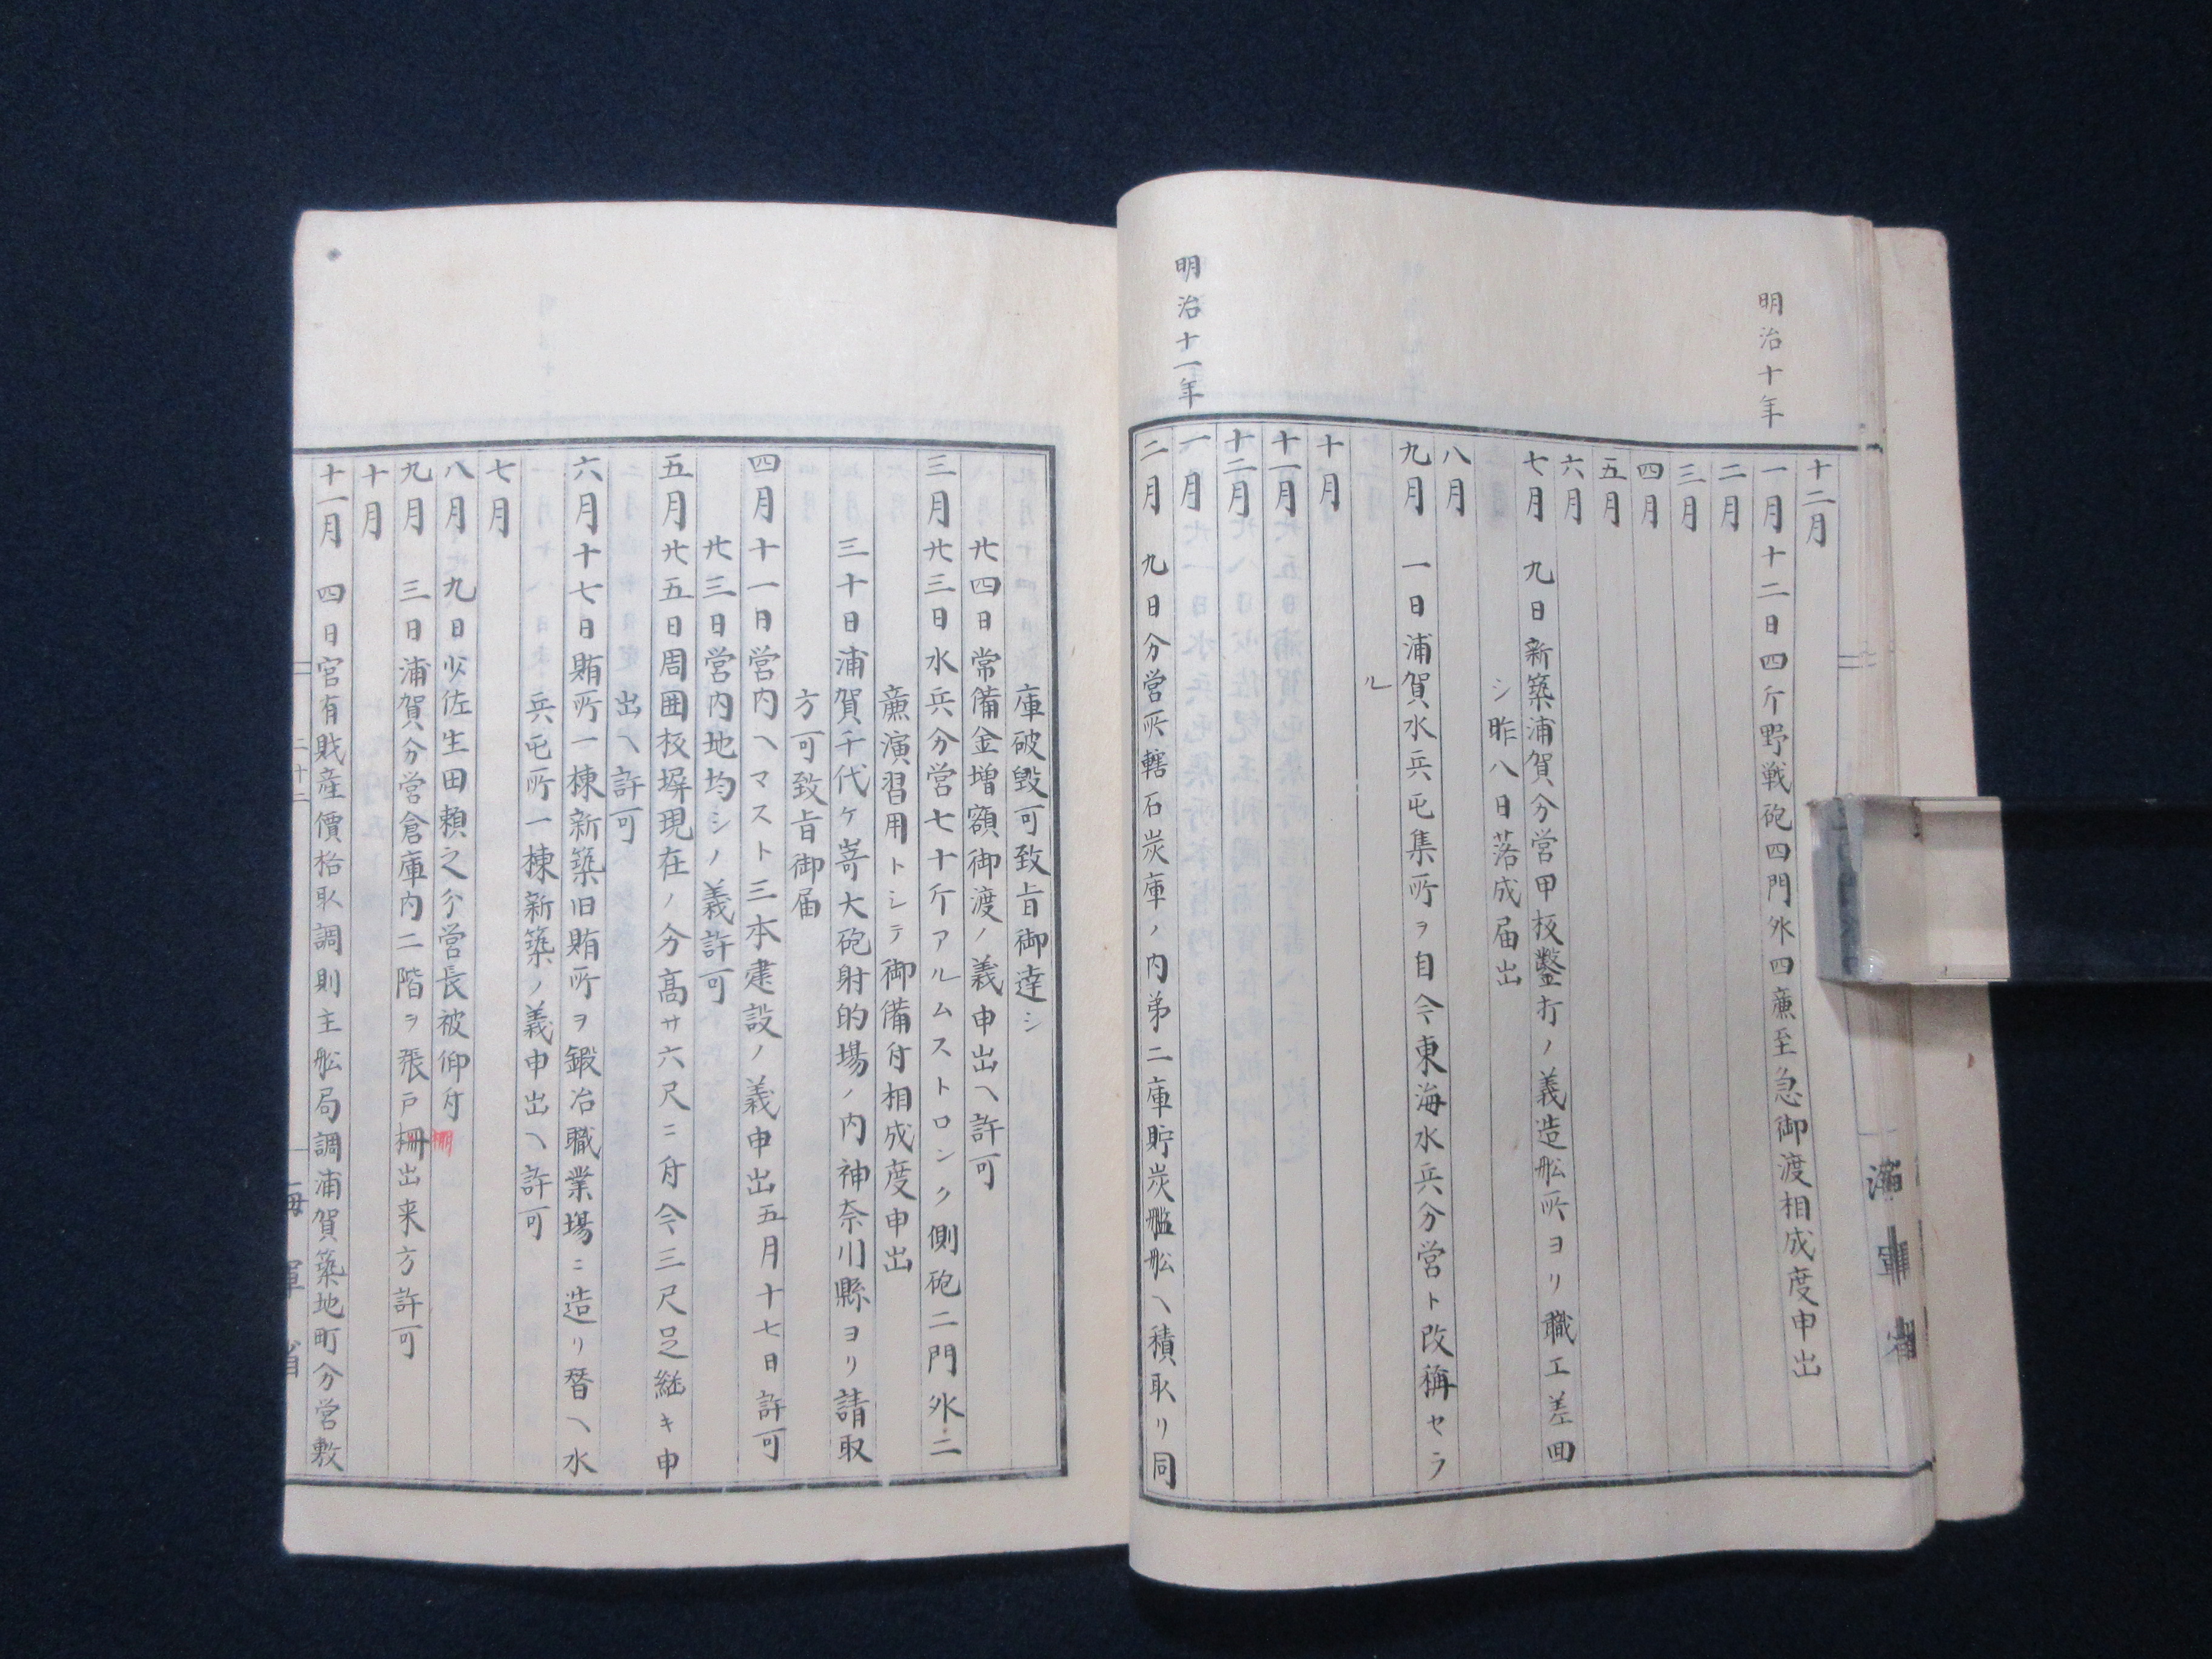 明治十年
十二月
一月十二日四斤野戦砲四門外四廉至急御渡相成度申出
二月
三月
四月
五月
六月
七月 九日新築浦賀分営甲板鑿打ノ義造舩所ヨリ職工差回
シ昨八日落成届出
八月
九月 一日浦賀水兵屯集所ヲ自今東海水兵分営ト改稱セラ
ル
十月
十一月
十二月
明治十一年
一月
二月 九日分営所轄石炭庫ノ内第二庫貯炭艦舩ヘ積取リ同
庫破毀可致旨御達シ
廿四日常備金増額御渡ノ義申出ヘ許可
三月廿三日水兵分営七十斤アルムストロンク側砲二門外二
廉演習用トシテ御備付相成度申出
三十日浦賀千代ケ嵜大砲射的場ノ内神奈川縣ヨリ請取
方可致旨御届
四月十一日営内ヘマスト三本建設ノ義申出五月十七日許可
廿三日営内地均シノ義許可
五月廿五日周囲板塀現在ノ分高サ六尺ニ付今三尺足継キ申
出ヘ許可
六月十七日賄所一棟新築旧賄所ヲ鍛冶職業場ニ造リ替ヘ水
兵屯所一棟新築ノ義申出ヘ許可
七月
八月 九日少佐生田頼之分営長被仰付
九月 三日浦賀分営倉庫内二階ヲ張戸柵出来方許可
棚
十月
十一月 四日官有財産價格取調則主舩局調浦賀築地町分営敷
二十二
海軍省
海軍省